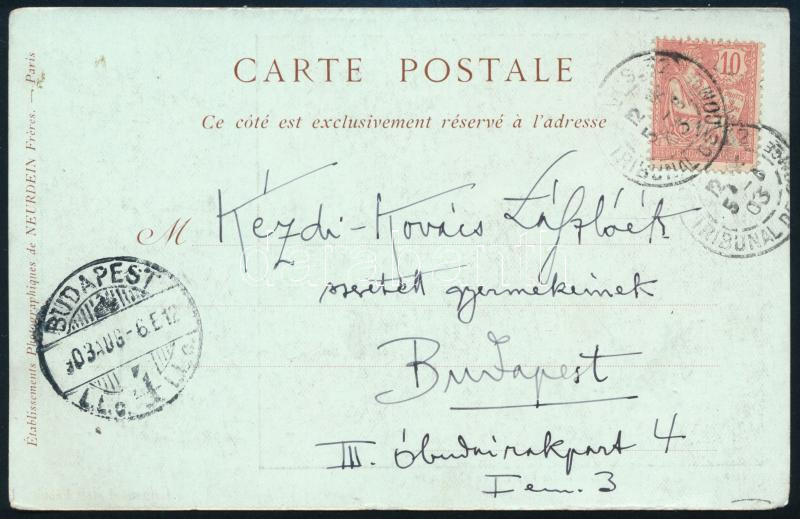 CARTE POSTALE
10
Ce côté est exclusivement réservé à l'adresse
M Kézdi-Kovács Lászlóék
szeretett gyermekeinek
Budapest
III. Óbudai rakpart 4
I em. 3
BUDAPEST
903 AUG -6.E.12
1
TRIBUNAL
TRIBUNAL DE
03
Établissements Photographiques de NEURDEIN Frères. — Paris